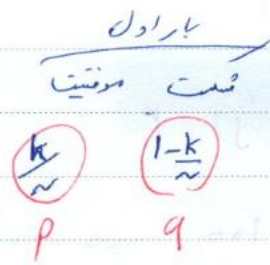 بار اول
موفقیت شکست
k/n 1-k/n
p q